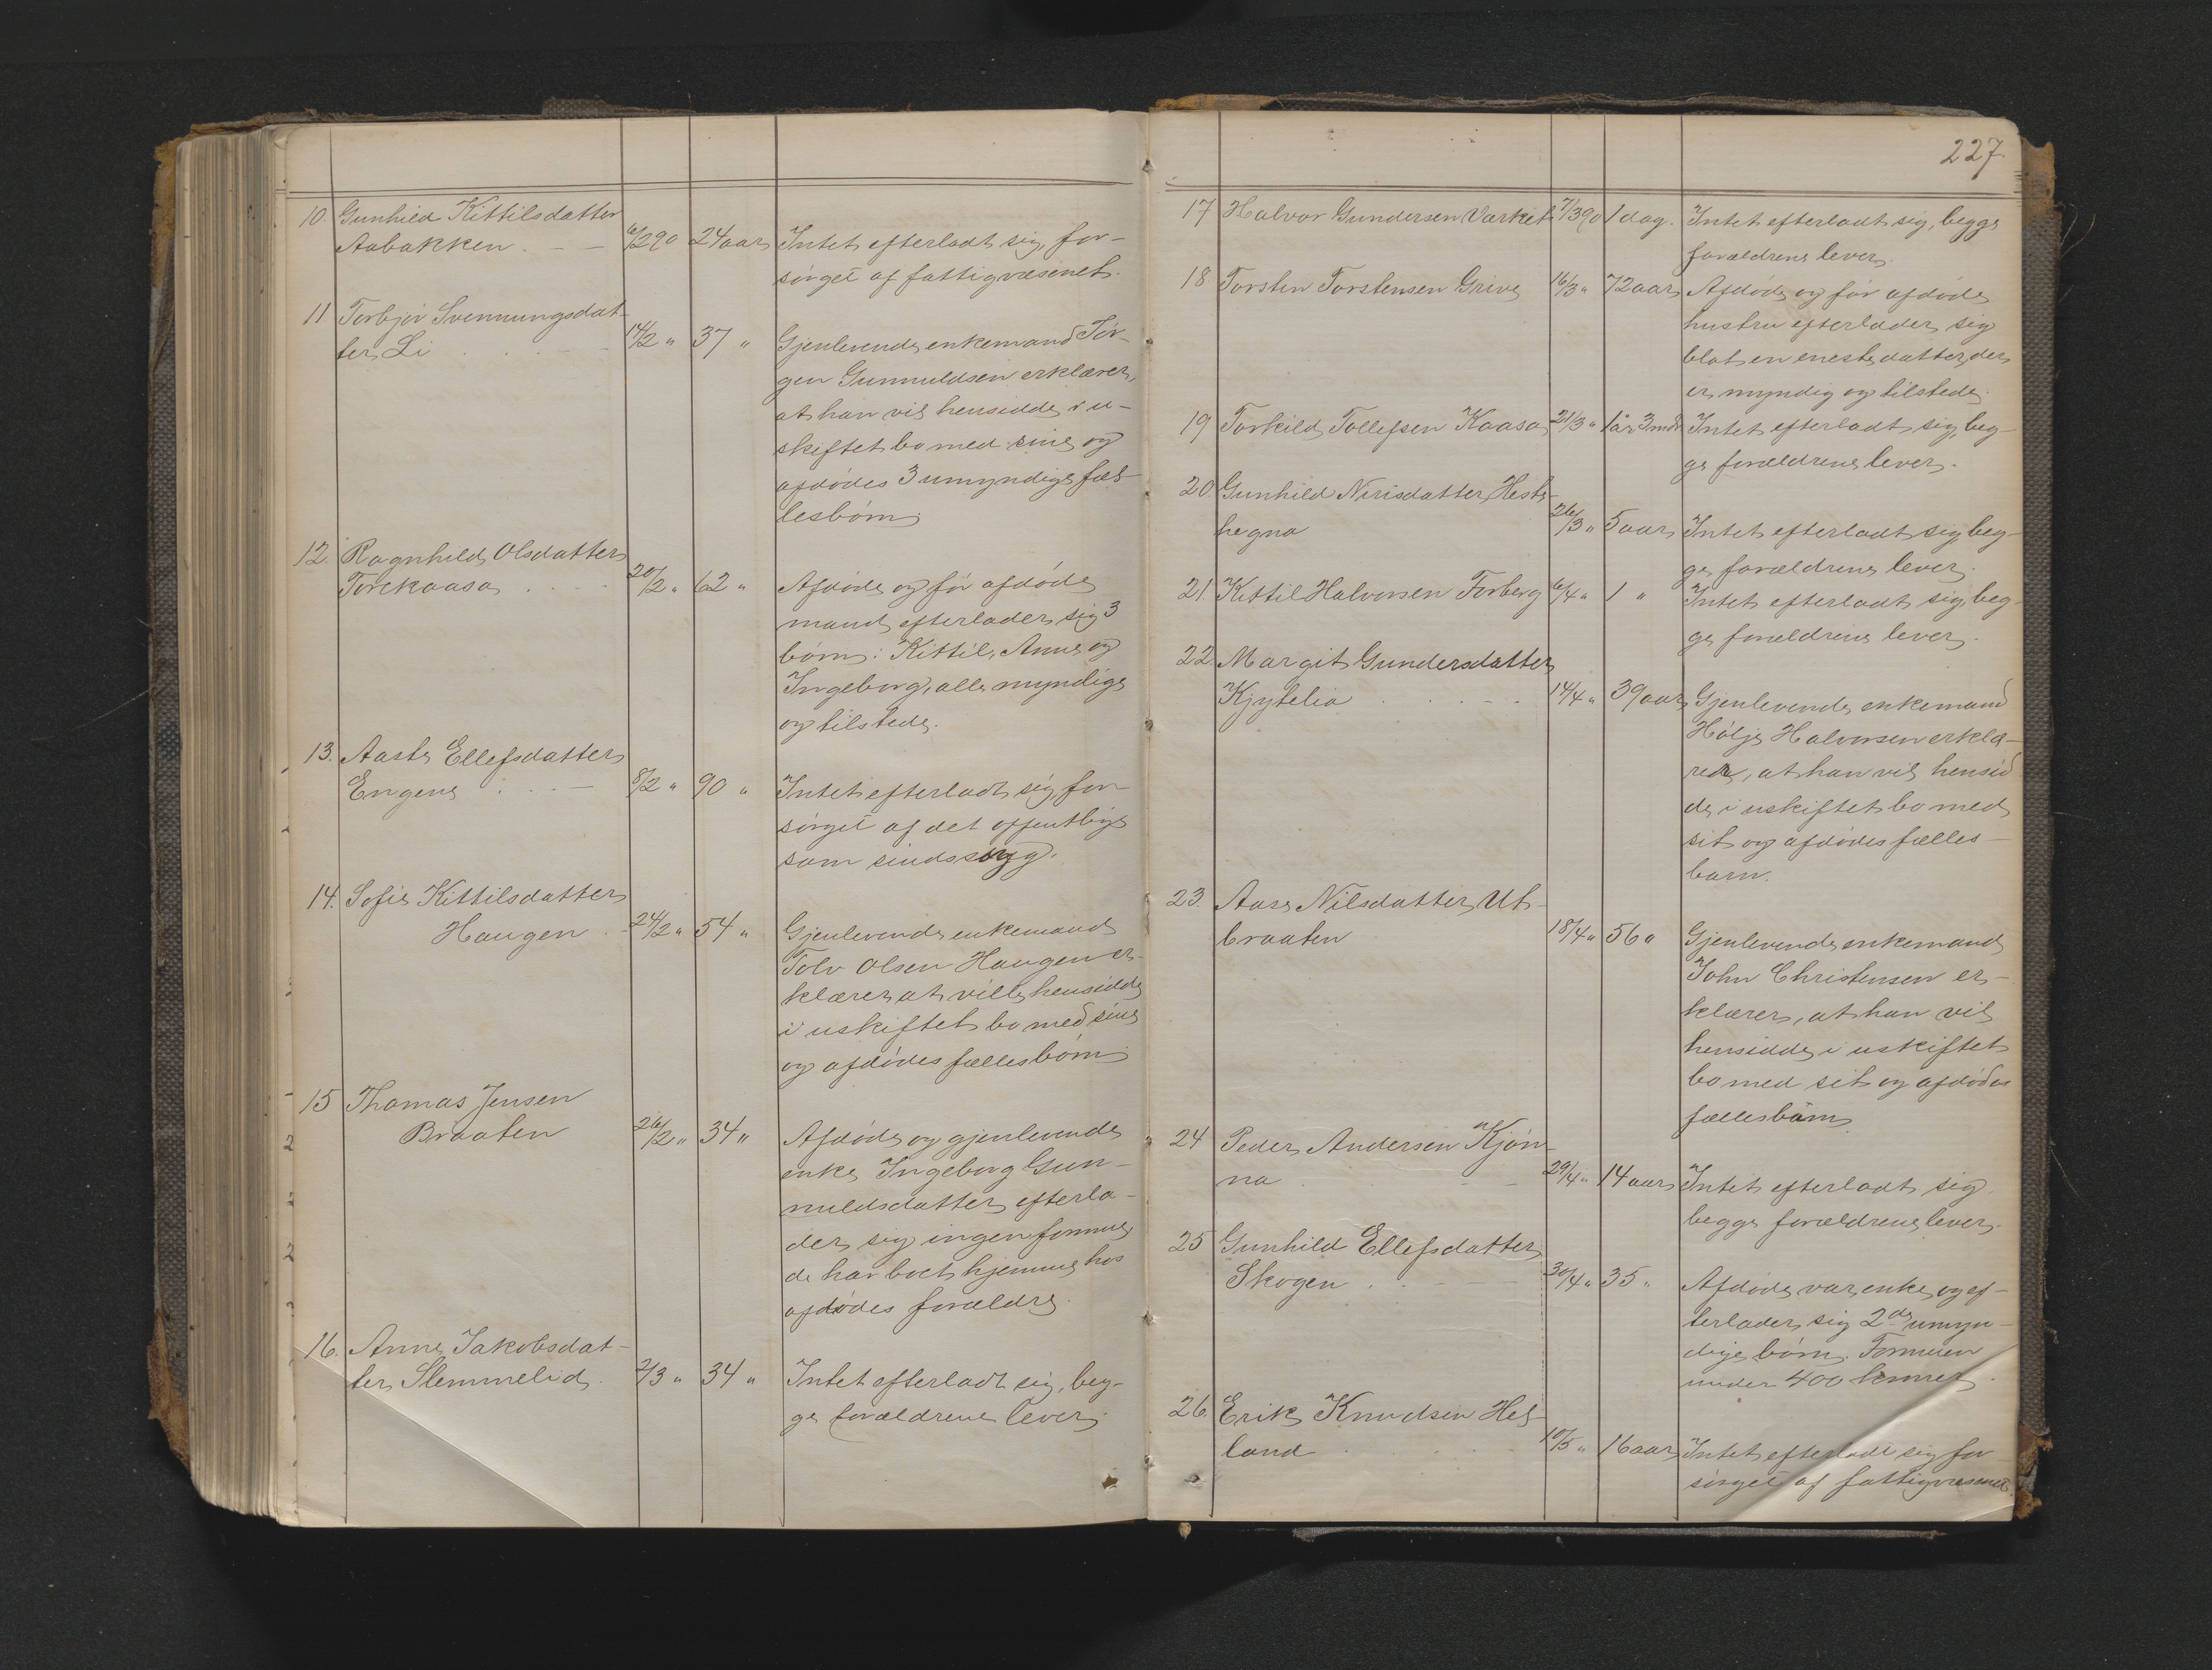 10. Gunhild Kittilsdatter
Aabakken . — — 6/2 90 24 aar Intet efterladt sig, for-
sörget af fattigvæsenet.
11 Torbjör Svennungsdat-
ter Li . . . — 14/2 " 37 " Gjenlevende enkemand Tor-
gen Gunnuldsen erklærer,
at han vil hensidde i u-
skiftet bo med sine og
afdödes 3 umyndige fæl-
lesbörn.
12. Ragnhild Olsdatter
Torekaasa . . . 20/2 " 62 " Afdöde og för afdöde
mand efterlader sig 3
börn: Kittil, Anne og
Ingeborg, alle myndige
og tilstede.
13. Aaste Ellefsdatter
Engene . . — 8/2 " 90 " Intet efterladt sig, for-
sörget af det offentlige
som sindssyg.
14. Sofie Kittilsdatter
Haugen . — 24/2 " 54 " Gjenlevende enkemand
Tolv Olsen Haugen er-
klærer at ville hensidde
i uskiftet bo med sine
og afdödes fællesbörn.
15 Thomas Jensen
Braaten 26/2 " 34 " Afdöde og gjenlevende
enke Ingeborg Gun-
nuldsdatter efterla-
der sig ingen formue,
de har boet hjemme hos
afdödes forældre.
16. Anne Jakobsdat-
ter Slemmelid 2/3 " 34 " Intet efterladt sig, beg-
ge forældrene lever.
227.
17 Halvor Gundersen Værket 7/3 90 1 dag. Intet efterladt sig, begge
forældrene lever.
18 Torsten Torstensen Grive 16/3 " 72 aar Afdöde og för afdöde
hustru efterlader sig
blot en eneste datter, der
er myndig og tilstede.
19 Torkild Tollefsen Kaasa 21/3 " 1 år 3 mdr Intet efterladt sig, beg-
ge forældrene lever.
20. Gunhild Nirisdatter Heste-
hegna 26/3 " 5 aar Intet efterladt sig, beg-
ge forældrene lever.
21. Kittil Halvorsen Forberg 6/4 " 1 " Intet efterladt sig, beg-
ge forældrene lever.
22 Margit Gundersdatter
Kjytelia . . . . 14/4 " 39 aar Gjenlevende enkemand
Hölje Halvorsen erklæ-
rer, at han vil hensid
de i uskiftet bo med
sit og afdödes fælles-
barn.
23. Aase Nilsdatter Ut-
braaten 18/4 " 56 " Gjenlevende enkemand
John Christensen er-
klærer, at han vil
hensidde i uskiftet
bo med sit og afdödes
fællesbarn
24 Peder Andersen Kjön-
na . — 29/4 " 14 aar Intet efterladt sig
begge forældrene lever.
25 Gunhild Ellefsdatter
Skogen . . — 30/4 " 35 " Afdöde var enke og ef-
terlader sig 2de umyn-
dige börn. Formuen
under 400 kroner.
26. Erik Knudsen Hel-
land . . . 10/5 " 16 aar Intet efterladt sig for
sörget af fattigvæsenet.